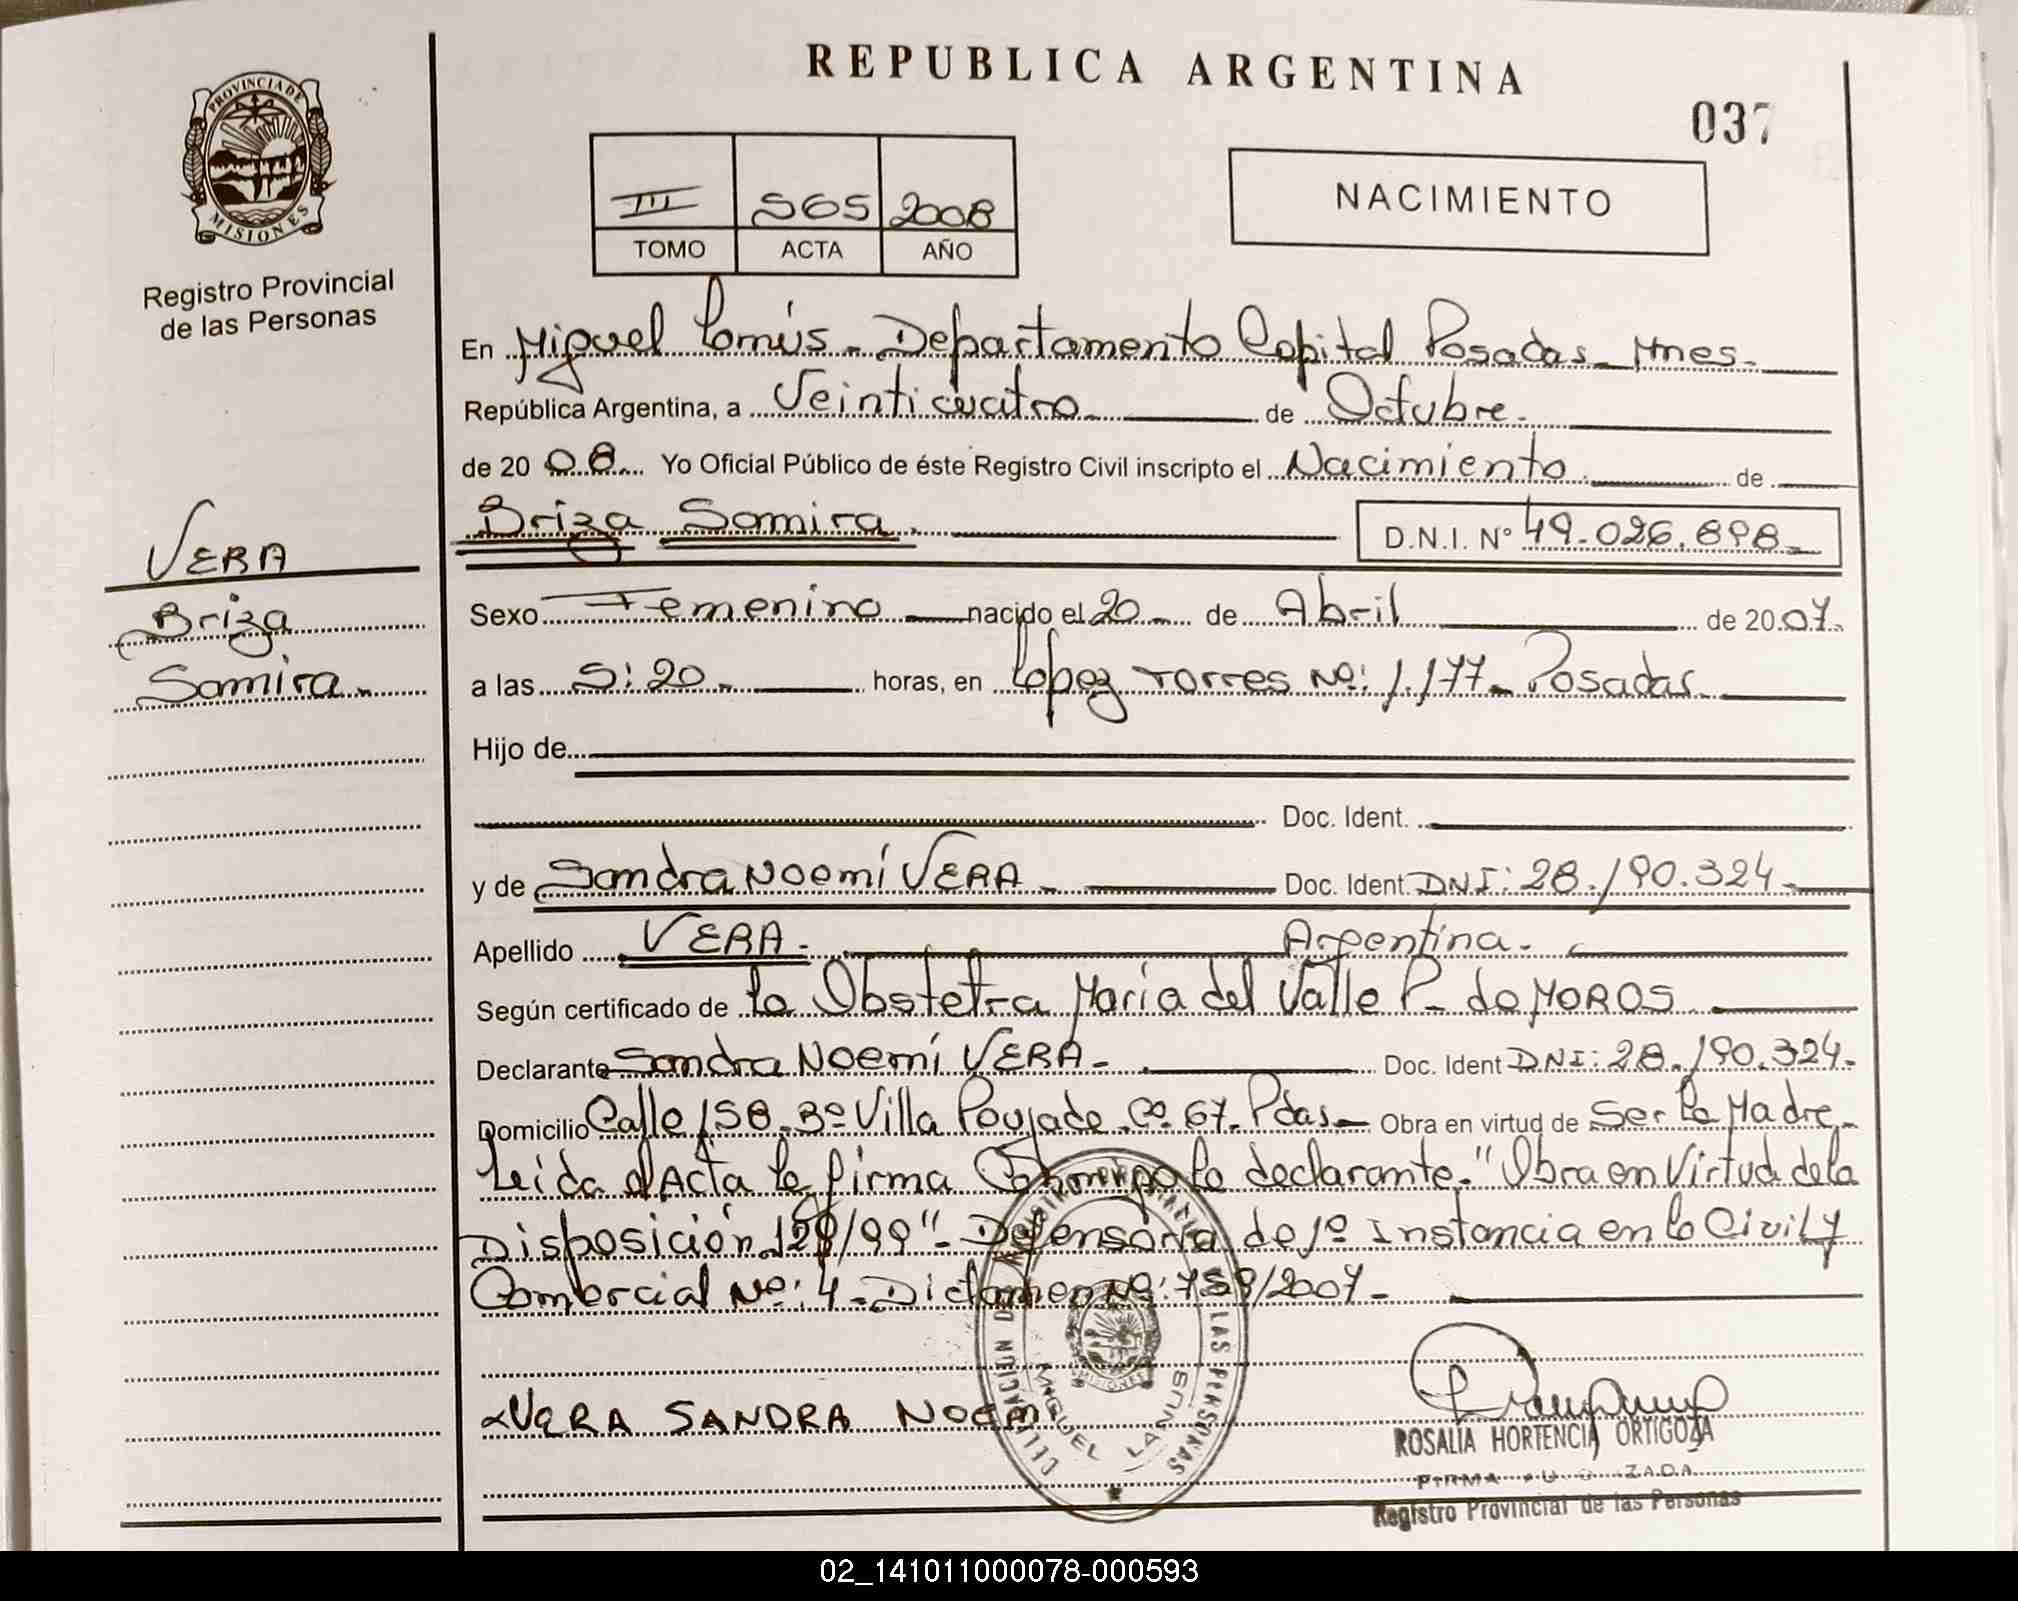 REPUBLICA ARGENTINA
037
PROVINCIA DE
MISIONES
Registro Provincial
de las Personas
III 565 2008
TOMO ACTA AÑO
NACIMIENTO
En Miguel Lanús - Departamento Capital Posadas - Mnes -
República Argentina, a Veinticuatro de Octubre.
de 20 08 Yo Oficial Público de éste Registro Civil inscripto el Nacimiento de
Briza Samira. D.N.I. Nº 49.026.898
VERA
Briza
Samira.
Sexo Femenino nacido el 20 de Abril de 2007
a las 5:20 horas, en López Torres Nº: 1.177 - Posadas
Hijo de
Doc. Ident.
y de Sandra Noemí VERA Doc. Ident. DNI: 28.190.324
Apellido VERA. Argentina.
Según certificado de la Obstetra María del Valle P. de MOROS
Declarante Sandra Noemí VERA Doc. Ident DNI: 28.190.324.
Domicilio Calle 158, Bº Villa Poujade Cº 67 - Pdas - Obra en virtud de Ser la Madre
Leída el Acta la firma Conmigo la declarante. "Obra en Virtud de la
Disposición /99" - Defensoría de 1º Instancia en lo Civil y
Comercial Nº: 4 - Dictamen Nº: 759/2007 -
VERA SANDRA NOEMI
MIGUEL LANUS
LAS PERSONAS
ROSALIA HORTENCIA ORTIGOZA
Registro Provincial de las Personas
02_141011000078-000593